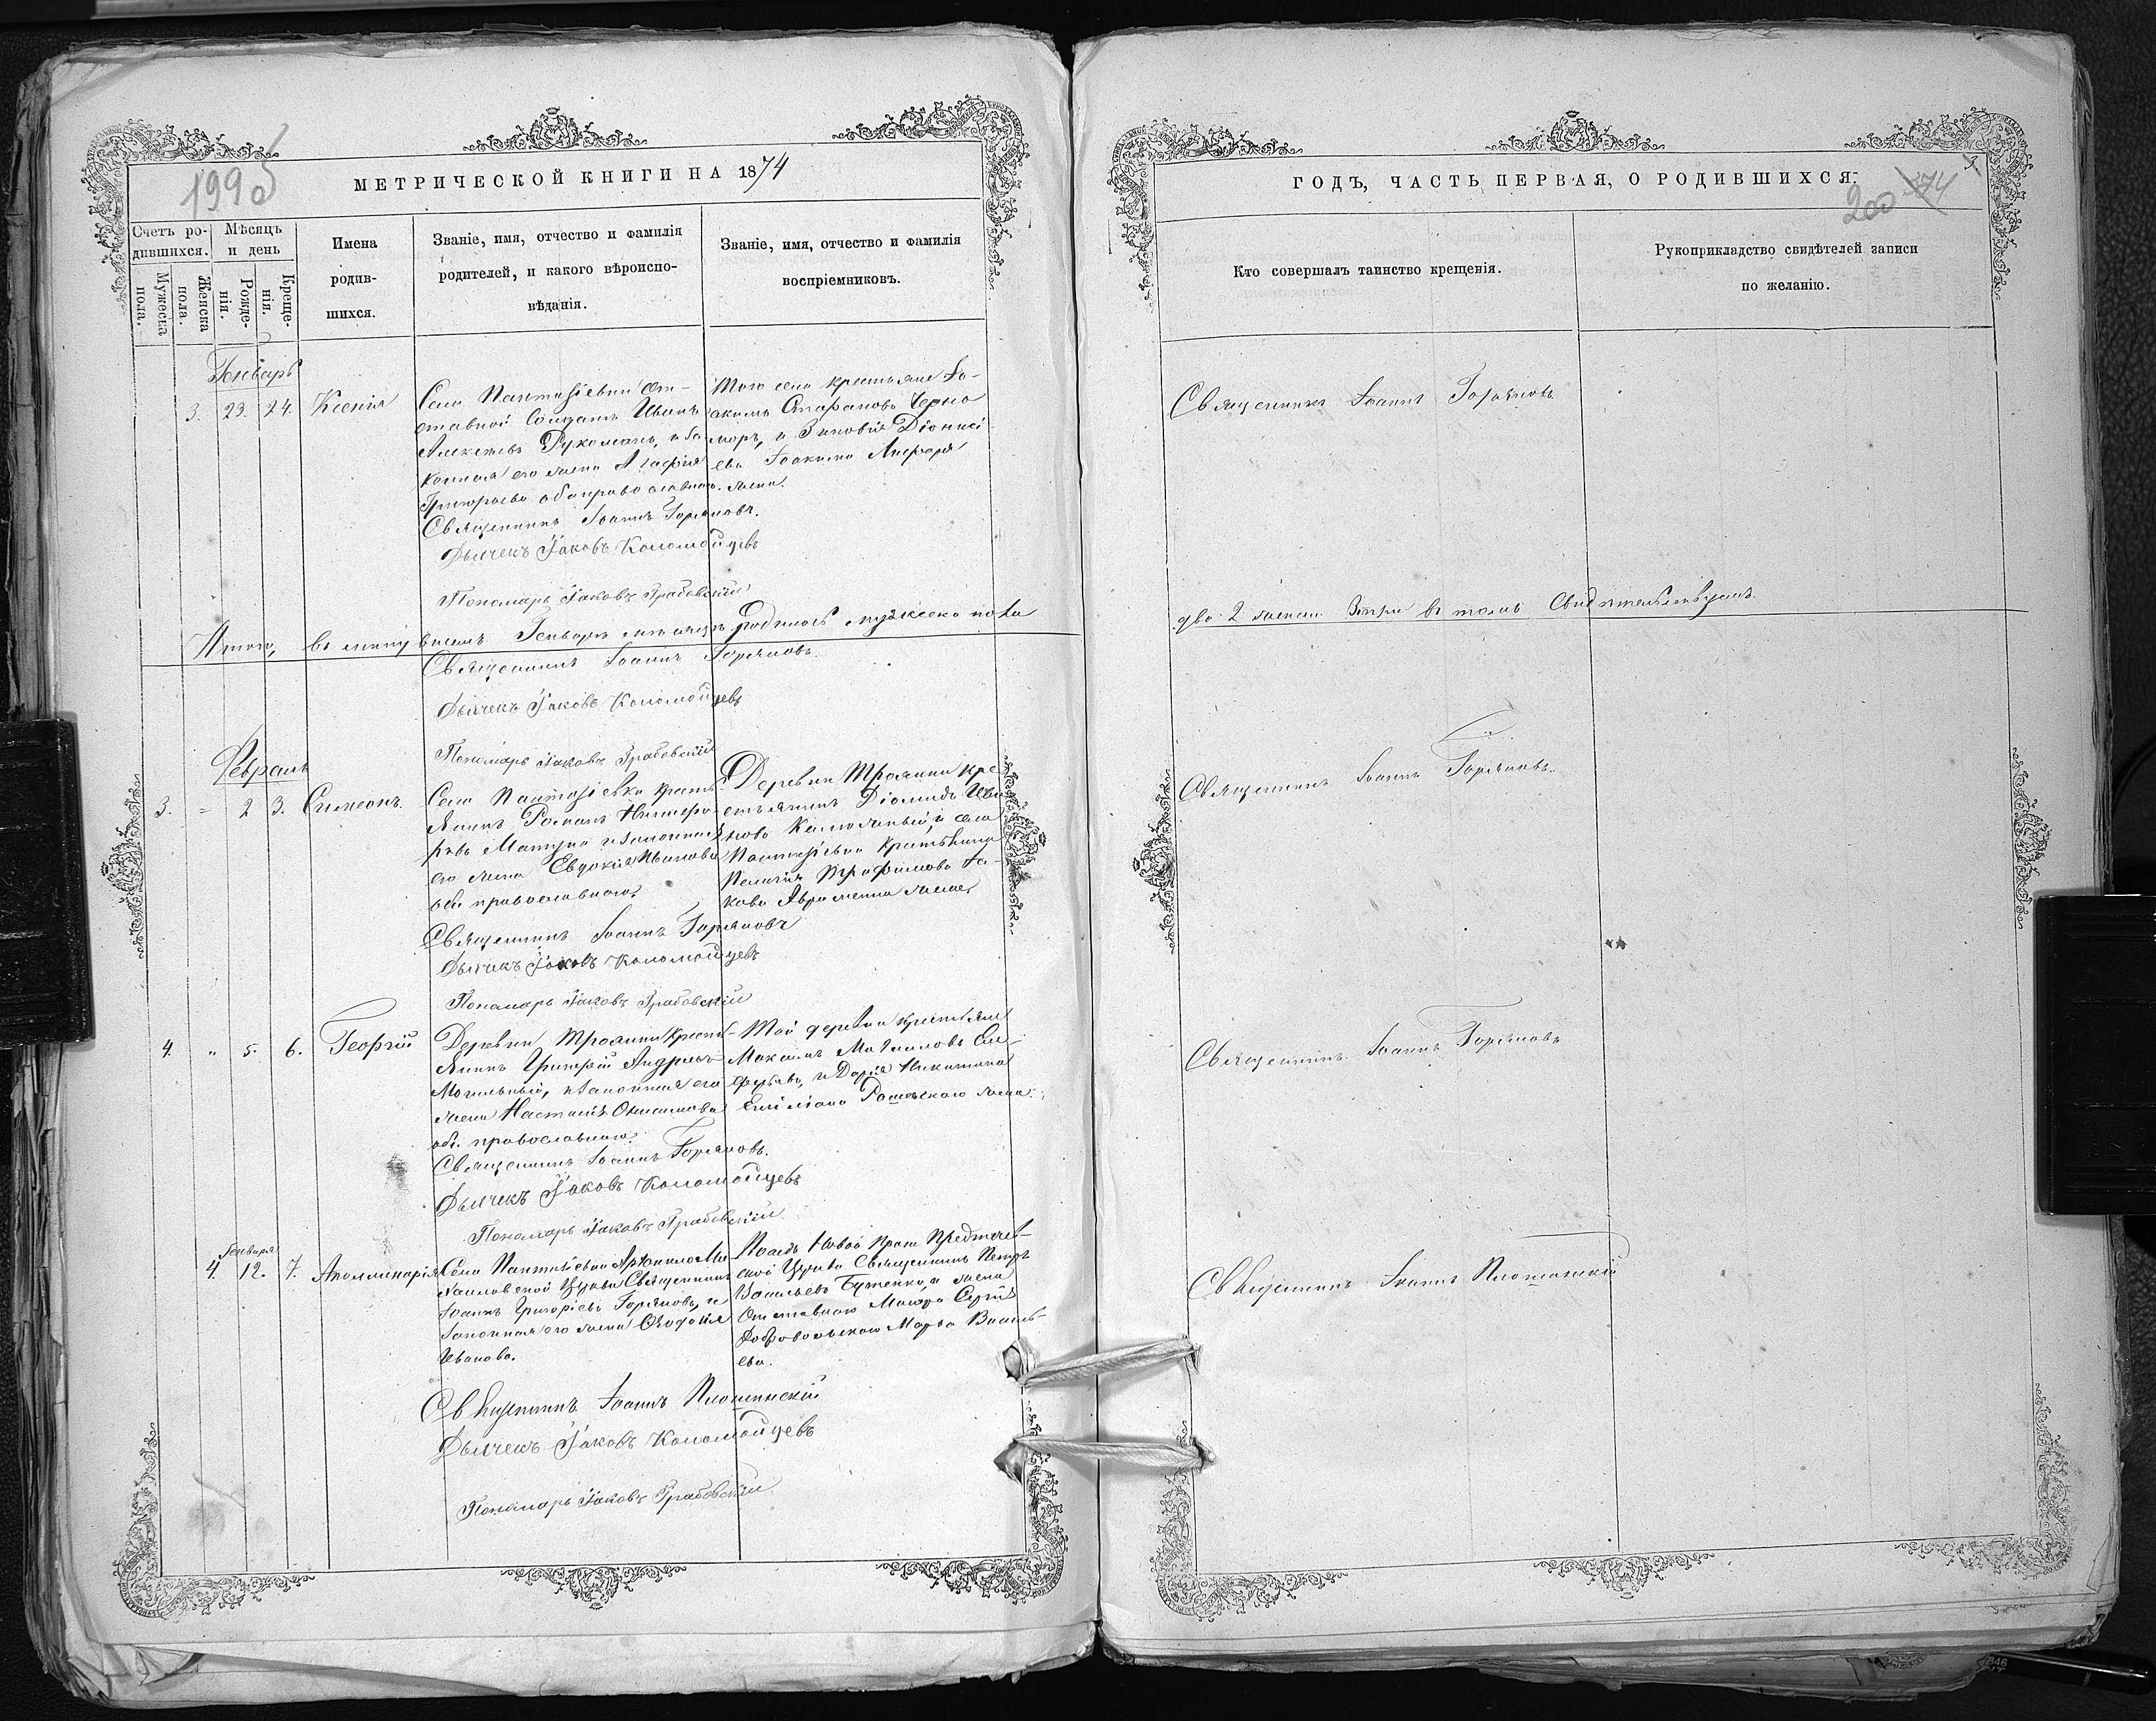 199 об
МЕТРИЧЕСКОЙ КНИГИ НА 1874
Счетъ ро-
дившихся.
Мѣсяцъ
и день
Мужеска
пола.
Женска
пола.
Рожде-
нія.
Креще-
нія.
Имена
родив-
шихся.
Званіе, имя, отчество и фамилія
родителей, и какого вѣроиспо-
вѣданія.
Званіе, имя, отчество и фамилія
воспріемниковъ.
Генварь
3. 23. 24. Ксенія
Села Пантазіевки от-
ставной Солдатъ Иванъ
Алексѣевъ и за-
конная его жена Агафія
Григорьева оба православнаго.
Священникъ Іоаннъ Горяновъ.
Дьячекъ Іаковъ Коломойцевъ
Пономарь Іаковъ Грабовскій
Того села крестьяне Іо-
акимъ Черно
моръ, и Зиновія Діонисі
ева Іоакима
жена.
Итого, въ минувшемъ Генварѣ мѣсяцѣ родилось мужеска пола
Священникъ Іоаннъ Горяновъ.
Дьячекъ Іаковъ Коломойцевъ
Пономарь Іаковъ Грабовскій
Февраль
3. " 2 3. Симеонъ.
Села Пантазіевки кресть
янинъ Романъ Никифо-
ровъ и законная
его жена Евдокія Иванова
оба православнаго.
Священникъ Іоаннъ Горяновъ
Дьячекъ Іаковъ Коломойцевъ
Пономарь Іаковъ Грабовскій
Деревни Трояники кре-
стьянинъ Діомидъ Ива
новъ и села
Пантазіевки крестьянина
Пелагія Трофимова Іа-
кова Авраменка жена.
4. " 5. 6. Георгій
Деревни Трояники кресть-
янинъ Григорій Андреевъ
Могильный, и законная его
жена Настасія Онисимова
об. православнаго.
Священникъ Іоаннъ Горяновъ.
Дьячекъ Іаковъ Коломойцевъ
Пономарь Іаковъ Грабовскій
Той деревни крестьяне
Максимъ Михаиловъ
и Дарія Никитина
Емиліана жена.
Генваря
4. 12. 7. Аполлинарія
Села Пантазіевки Архангело Ми-
хаиловской Церкви Священникъ
Іоаннъ Григоріевъ Горяновъ, и
законная его жена Ѳеодосія
Иванова.
Священникъ Іоаннъ Плошинскій
Дьячекъ Іаковъ Коломойцевъ
Пономарь Іаковъ Грабовскій
Посада Новой Праги Предтечев-
ской Церкви Священникъ Петръ
Васильевъ Бутенко, и жена
Отставнаго Маіора Сергія
Добровольскаго Марѳа Василь-
ева.
ГОДЪ, ЧАСТЬ ПЕРВАЯ, О РОДИВШИХСЯ.
200
Кто совершалъ таинство крещенія.
Рукоприкладство свидѣтелей записи
по желанію.
Священникъ Іоаннъ Горяновъ
два 2 женска 3 три въ томъ Свидѣтельствуемъ.
Священникъ Іоаннъ Горяновъ.
Священникъ Іоаннъ Горяновъ
Священникъ Іоаннъ Плошинскій